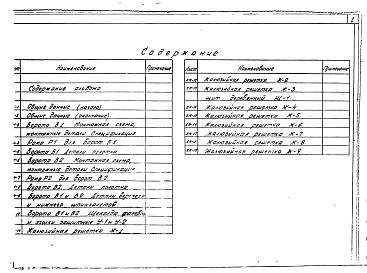 2
Содержание
Наименование
Примечание
Содержание альбома
Общие данные (начало)
Общие данные (окончание)
Ворота В1 Монтажная схема,
монтажные детали Спецификация
Рама Р1 для ворот В1
Ворота В1 Детали полотна
Ворота В2 Монтажная схема,
монтажные детали Спецификация
Рама Р2 для ворот В2
Ворота В2. Детали полотна
Ворота В1 и В2 Детали верхнего
и нижнего шпингалетов
Ворота В1 и В2 Щеколда
и защитные Ч-1 и Ч-2
Жалюзийная решетка Ж-1
Лист
Наименование
Примечание
Жалюзийная решетка Ж-2
Жалюзийная решетка Ж-3
щит деревянный Щ-1
Жалюзийная решетка Ж-4
Жалюзийная решетка Ж-5
Жалюзийная решетка Ж-6
Жалюзийная решетка Ж-7
Жалюзийная решетка Ж-8
Жалюзийная решетка Ж-9